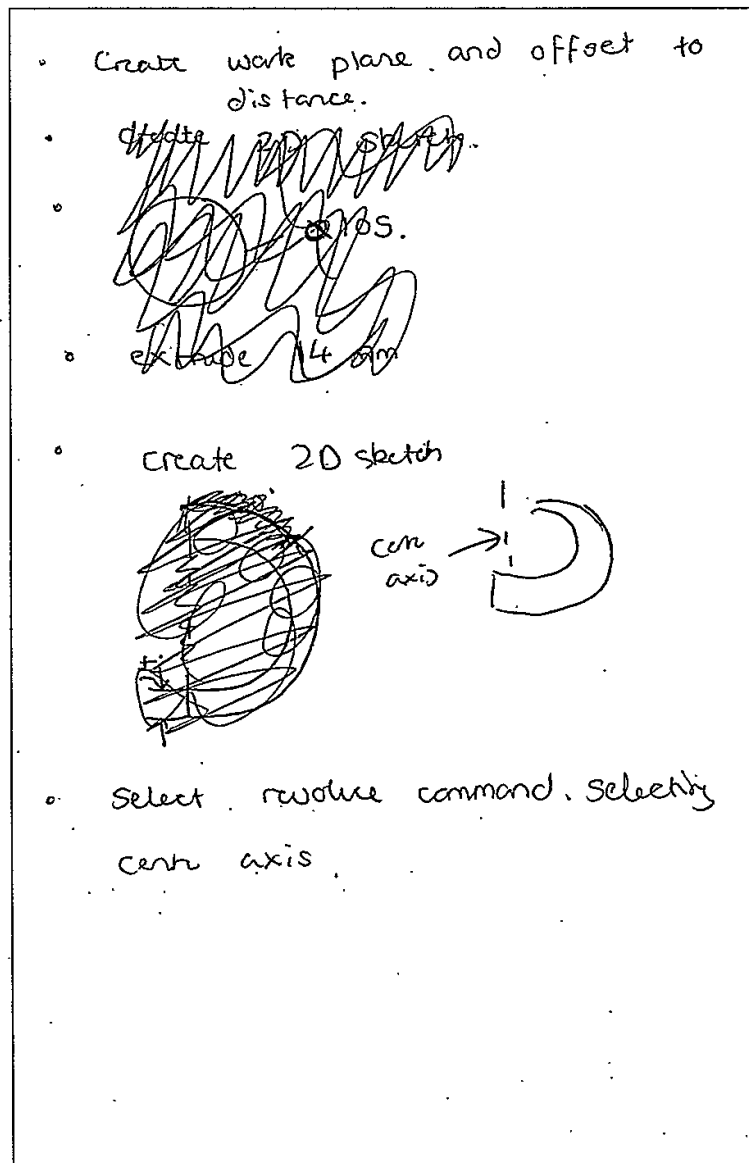 Create work plane. and offset to
distance.
create 2D sketch.
ø105.
extrude 14 mm
create 2D sketch
cenr
axis
Select revolve command. Selecting
cenr axis.